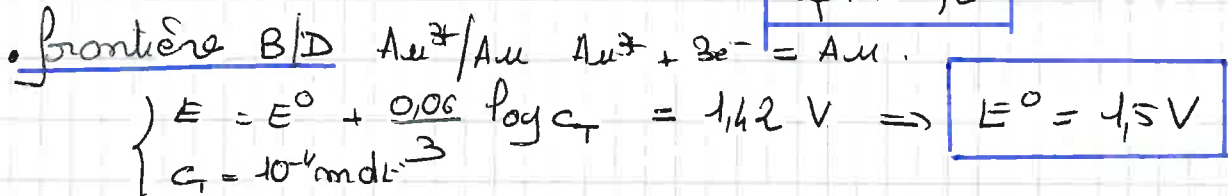 • frontière B/D Au³⁺/Au Au³⁺ + 3e⁻ = Au.
{ E = E⁰ + 0,06/3 log C_T = 1,42 V ⇒ E⁰ = 1,5 V
C_T = 10⁻⁴ mol.L⁻¹